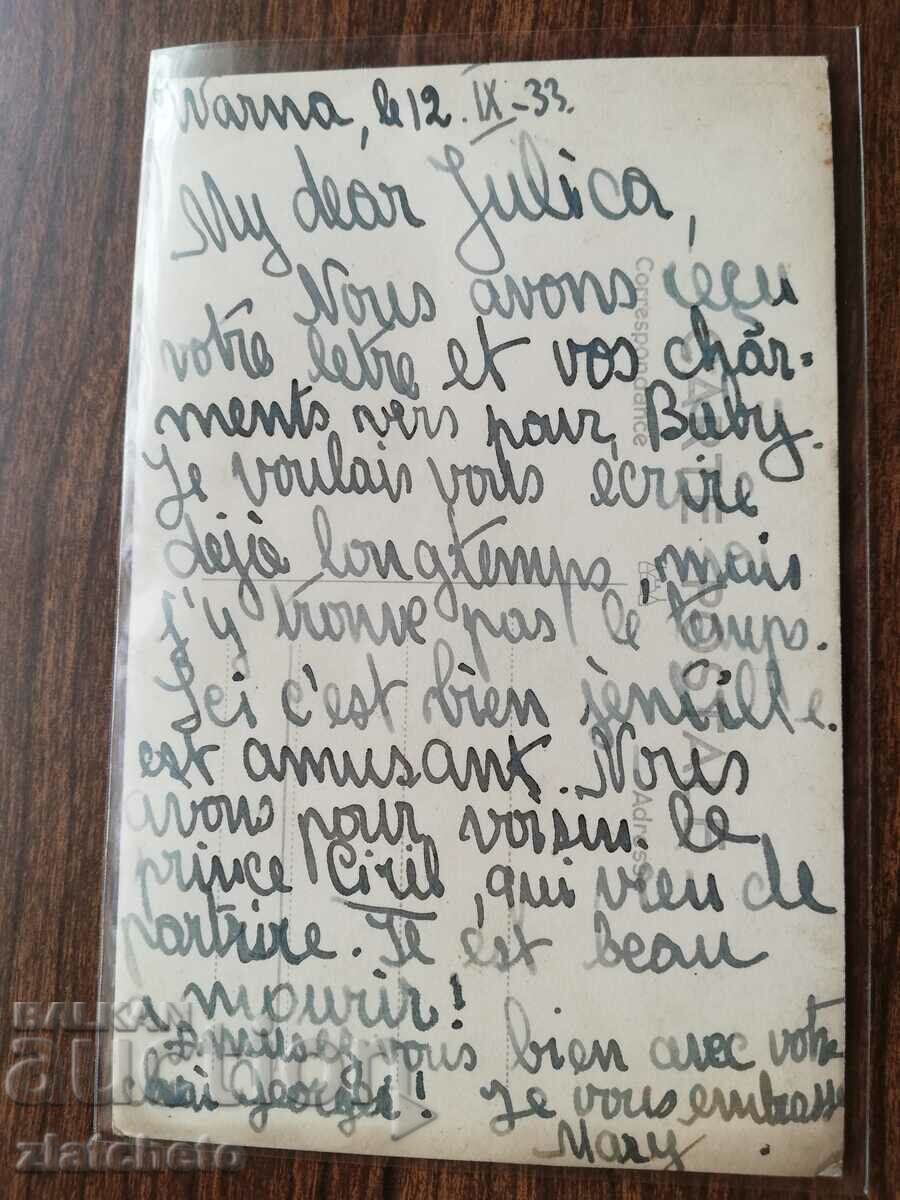 Varna, le 12. IX-33.
My dear Julica,
Nous avons reçu
votre letre et vos char-
ments vers pour Baby.
Je voulais vous écrire
déjà longtemps, mais
j'y trouve pas le temps.
Ici c'est bien jentille
est amusant. Nous
avons pour voisin le
prince Ciril, qui vien de
partire. Il est beau
a mourir!
Amusez vous bien avec votre
Georges! Je vous embrasse
Mary
CARTE POSTALE
Correspondance
Adresse
BALKAN
auction
zlatcheto